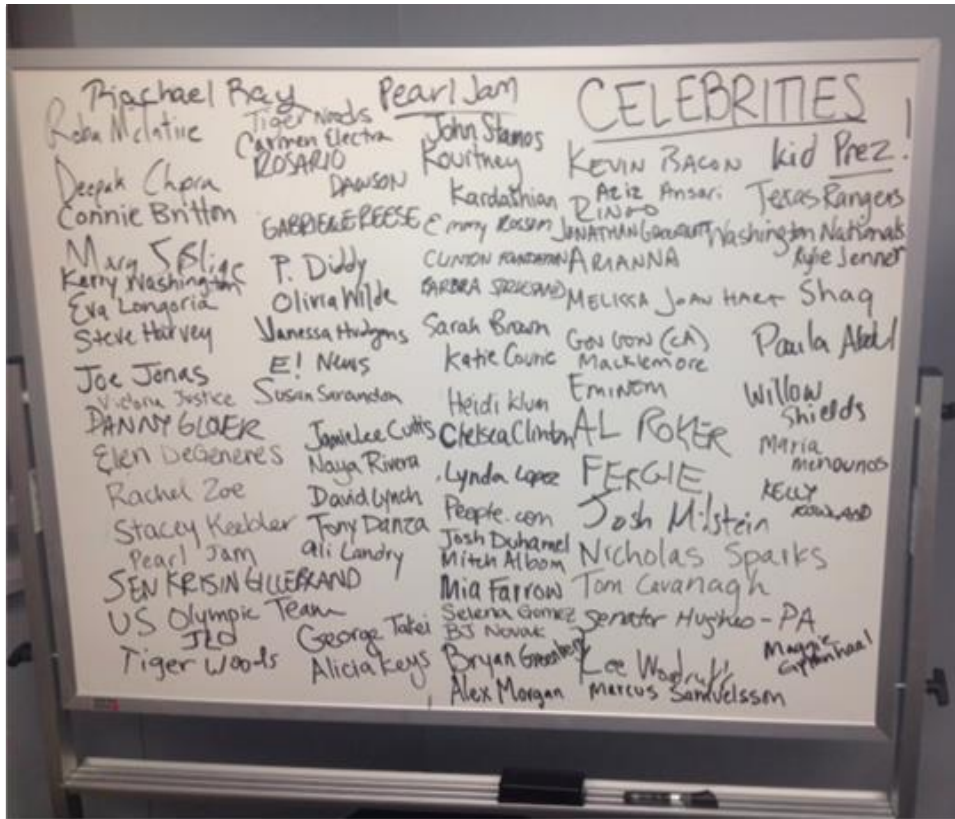 CELEBRITIES
Rachael Ray
Reba McIntire
Deepak Chpra
Connie Britton
Mary J Blige
Kerry Washington
Eva Longoria
Steve Harvey
Joe Jonas
Victoria Justice
DANNY GLOVER
Elen DeGeneres
Rachel Zoe
Stacey Keebler
Pearl Jam
SEN KRISIN GILLEBRAND
US Olympic Team
JLO
Tiger Woods
Tiger Woods
Carmen Electra
ROSARIO
DAWSON
GABRIELLE REESE
P. Diddy
Olivia Wilde
Vanessa Hudgens
E! News
Susan Sarandon
Jamie Lee Curtis
Naya Rivera
David Lynch
Tony Danza
Ali Landry
George Takei
Alicia Keys
Pearl Jam
John Stamos
Kourtney
Kardashian
Emmy Rossum
CLINTON FOUNDATION
BARBRA STREISAND
Sarah Brown
Katie Couric
Heidi Klum
Chelsea Clinton
Lynda Lopez
People.com
Josh Duhamel
Mitch Albom
Mia Farrow
Selena Gomez
BJ Novak
Bryan Greenberg
Alex Morgan
KEVIN BACON
Aziz Ansari
RINGO
JONATHAN
ARIANNA
MELISSA JOAN HART
GOV (CA)
Macklemore
EMINEM
AL ROKER
FERGIE
Josh Milstein
Nicholas Sparks
Tom Cavanagh
Senator Hughes - PA
Lee Woodruff
Marcus Samuelsson
Kid Prez!
Texas Rangers
Washington Nationals
Kylie Jenner
Shaq
Paula Abdul
Willow
Shields
Maria
Menounos
KELLY
ROWLAND
Maggie
Gyllenhaal